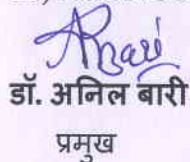 डॉ. अनिल बारी
प्रमुख